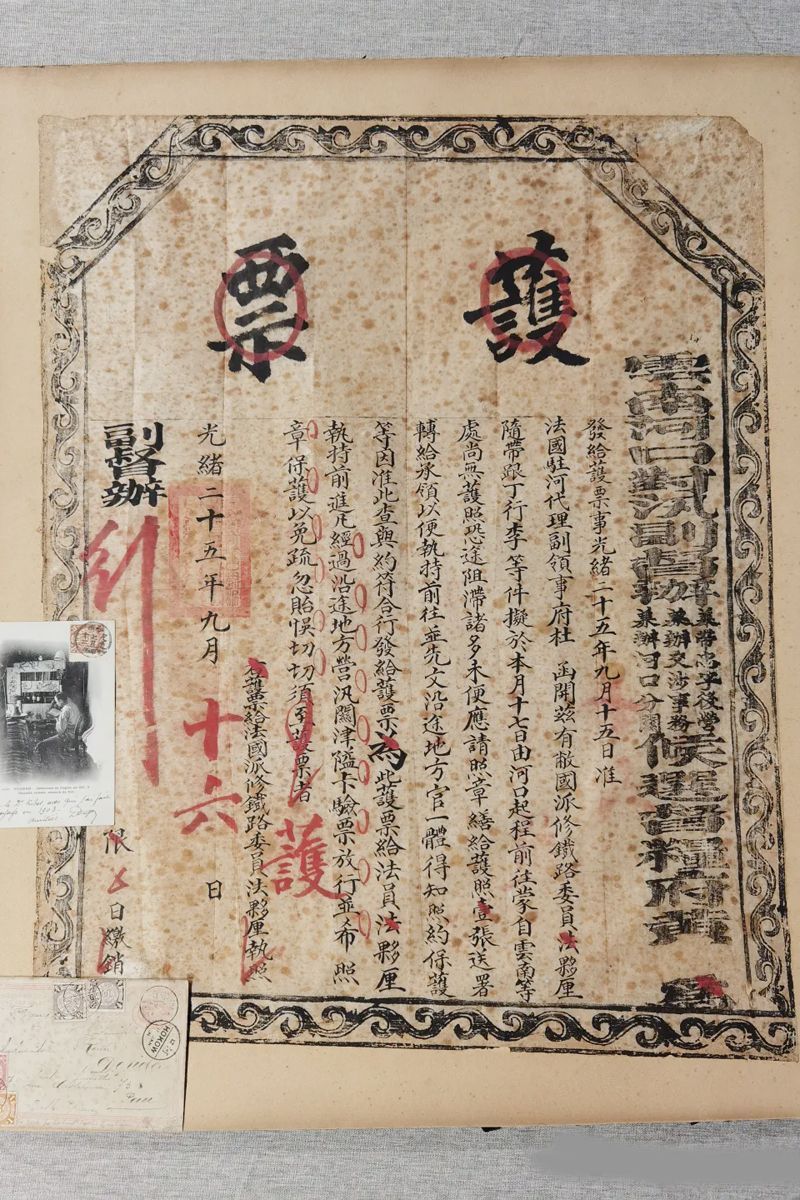 護票
雲南河口對汛副督辦
兼帶忠字後營
兼辦交涉事務
兼辦河口分關
候選督糧府黃
為
發給護票事光緒二十五年九月十五日准
法國駐河代理副領事府杜 函開茲有敝國派修鐵路委員法夥厘
隨帶跟丁行李等件擬於本月十七日由河口起程前往蒙自雲南等
處尚無護照恐途阻滯諸多未便應請照章繕給護照壹張送署
轉給承領以便執持前往並先文沿途地方官一體得知照約保護
等因准此查與約符合行發給護票為此護票給法員法夥厘
執持前進凡經過沿途地方營汛關津隘卡驗票放行並希照
章保護以免疏忽貽悞切切須至護票者
護
右護票給法國派修鐵路委員法夥厘執照
光緒二十五年九月十六日
副督辦
限 日繳銷
HOKOW